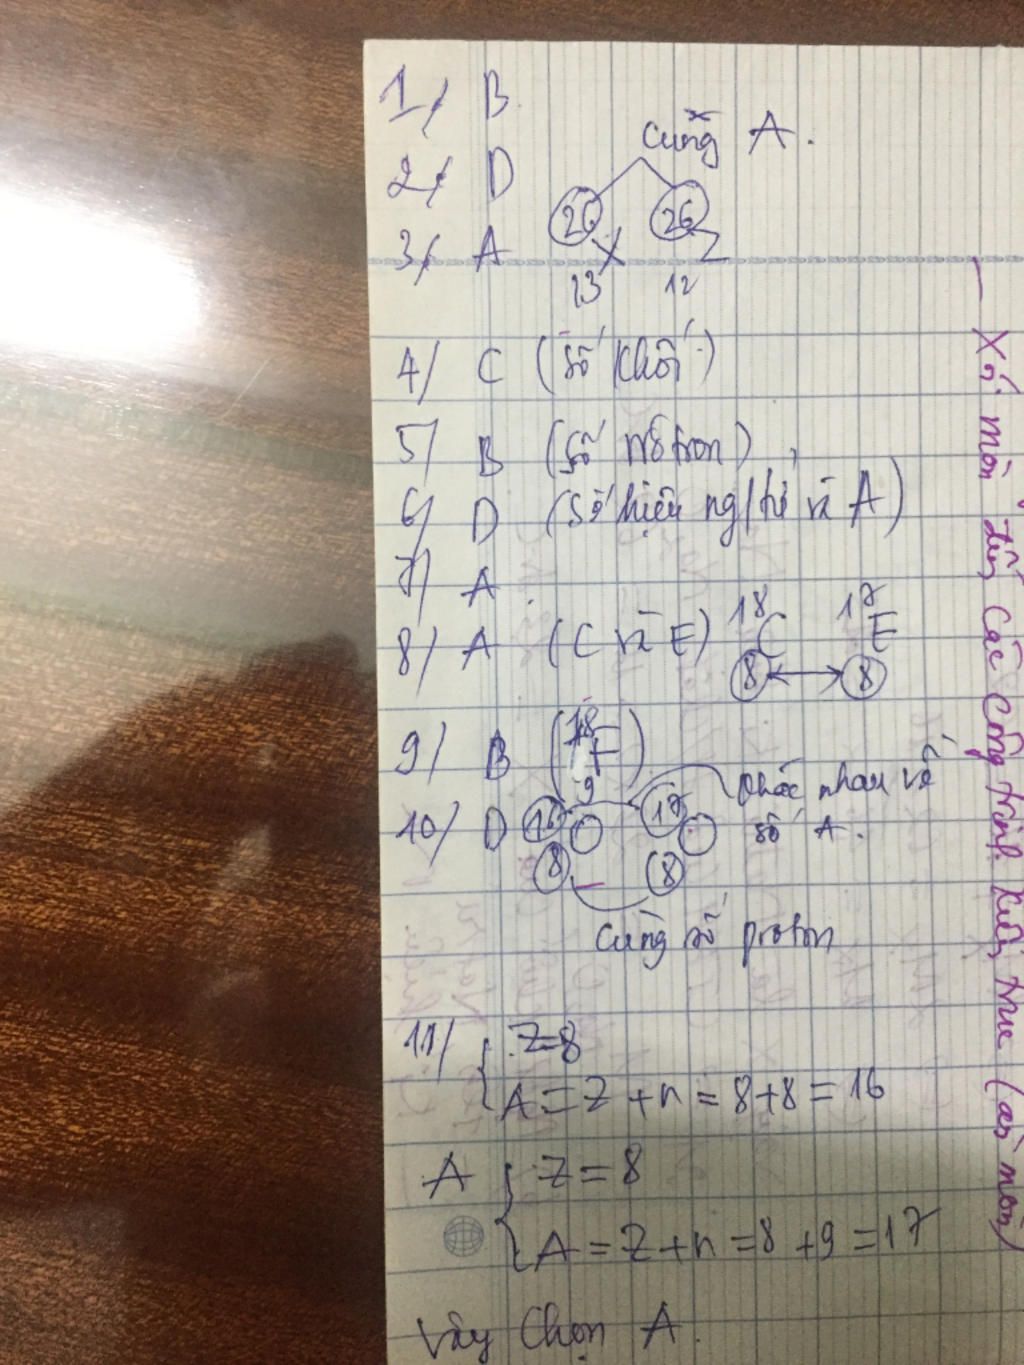 1/ B.
cùng A.
2/ D
3/ A 26 X 13 26 Z 12
4/ C (số khối)
5/ B (số nơtron)
6/ D (số hiệu ng/tử và A)
7/ A.
8/ A (C và E) 18 C 8 17 E 8
9/ B (18 F 9)
10/ D 16 O 8 17 O 8 khác nhau về số A.
Cùng số proton
11/ Z=8
A = Z + n = 8+8 = 16
A Z = 8
A = Z + n = 8 + 9 = 17
Vậy Chọn A.
- Xói mòn đất, các công trình kiến trúc (ăn mòn)